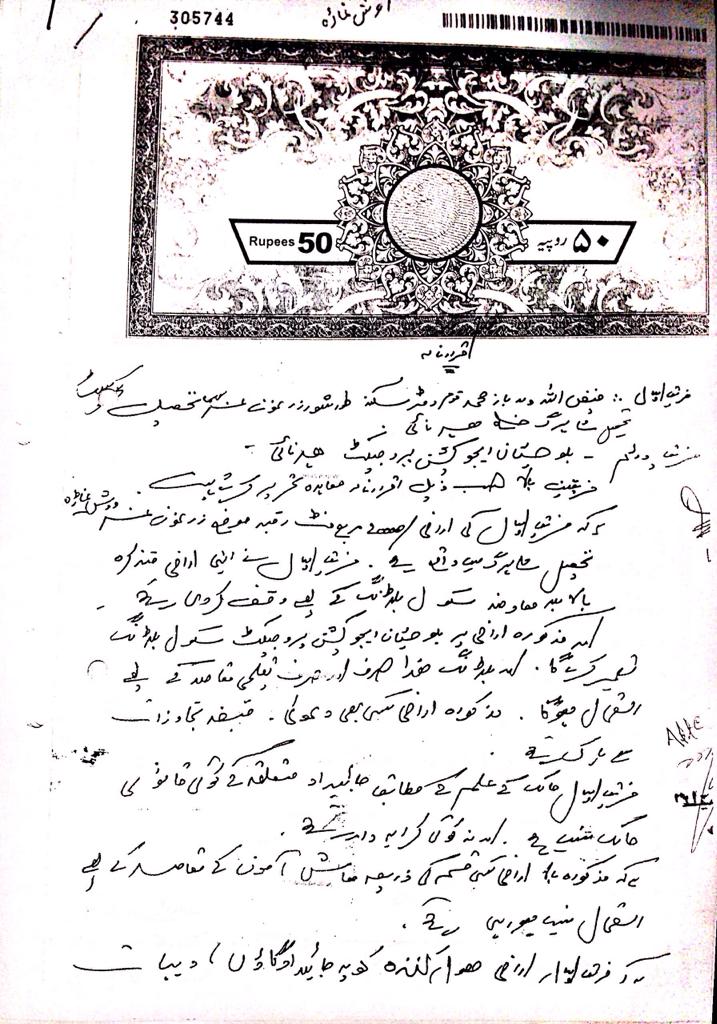 305744
Rupees 50
۵۰ روپیہ
اقرارنامہ
فریق اول :. فیض اللہ ولد باز محمد قوم سکنہ تحصیل و
تحصیل شاہرگ ضلع ہرنائی
فریق دوئم - بلوچستان ایجوکیشن پروجیکٹ ہرنائی -
فریقین بالا حسب ذیل اقرارنامہ معاہدہ تحریر کرتے ہیں.
یہ کہ فریق اول کی اراضی مربع فٹ رقبہ موضع زرغون
تحصیل شاہرگ میں واقع ہے . فریق اول نے اپنی اراضی متذکرہ
بالا بلا معاوضہ سکول بلڈنگ کے لئے وقف کردی ہے -
اور مذکورہ اراضی پر بلوچستان ایجوکیشن پروجیکٹ سکول بلڈنگ
تعمیر کریگا . اور بلڈنگ ھذا صرف اور صرف تعلیمی مقاصد کے لئے
استعمال ہوگا . مذکورہ اراضی کسی بھی دعوی . قبضہ تجاوزات
سے پاک ہے .
فریق اول مالک کے علم کے مطابق جائیداد متعلقہ کے کوئی قانونی
مالک نہیں ہے . اور نہ کوئی کرایہ دار ہے .
یہ کہ مذکورہ بالا اراضی کسی قسم کی ذریعہ معاش آمدن کے مقاصد کے لئے
استعمال نہیں ہورہی ہے .
یہ کہ فریق اول اراضی کو یہ جائیداد گاؤں / دیہات